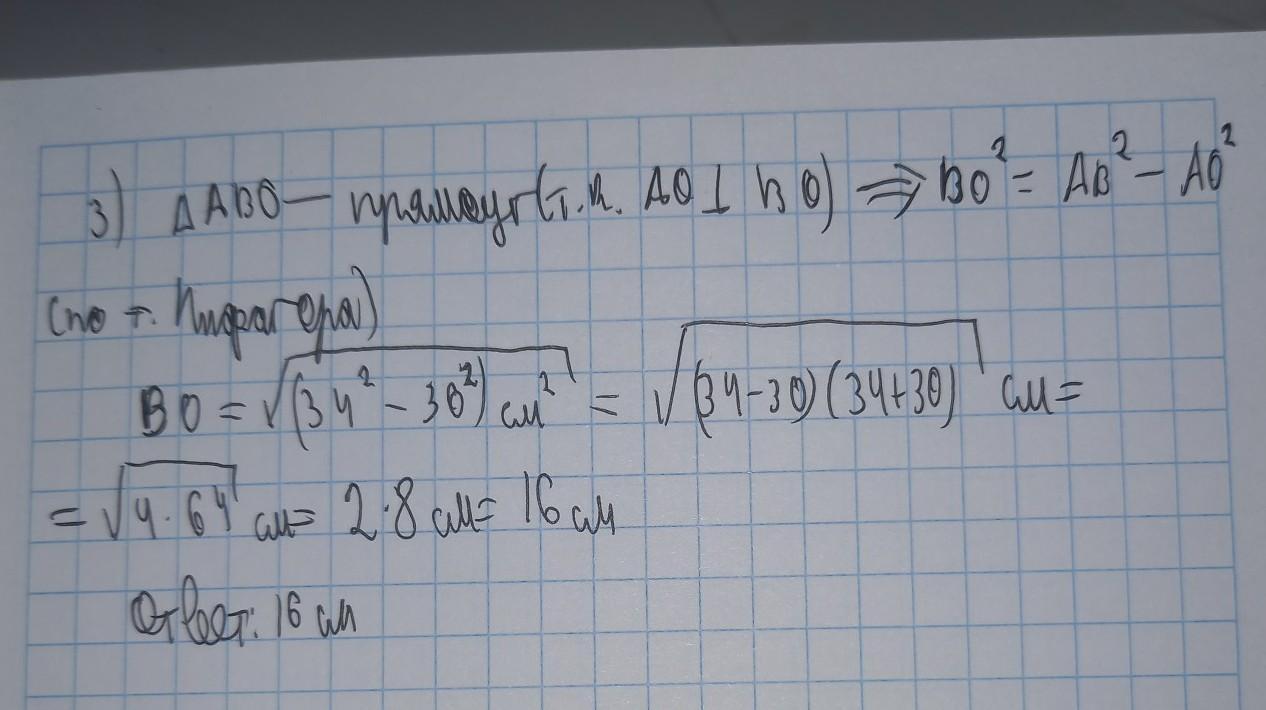 3) ΔABO — прямоуг (т.к. AO ⊥ BO) ⇒ BO² = AB² − AO²
(по т. Пифагора)
BO = √(34² − 30²) см² = √(34−30)(34+30) см =
= √4·64 см = 2·8 см = 16 см
Ответ: 16 см